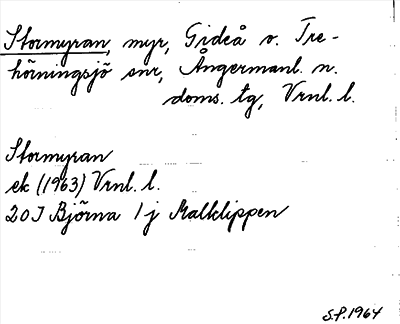 Stormyran, myr, Gideå o. Tre-
hörningsjö snr, Ångermanl. n.
doms. tg, Vrnl. l.
Stormyran
ek (1963) Vrnl. l.
20 J Björna 1 j Malklippen
S.P. 1964